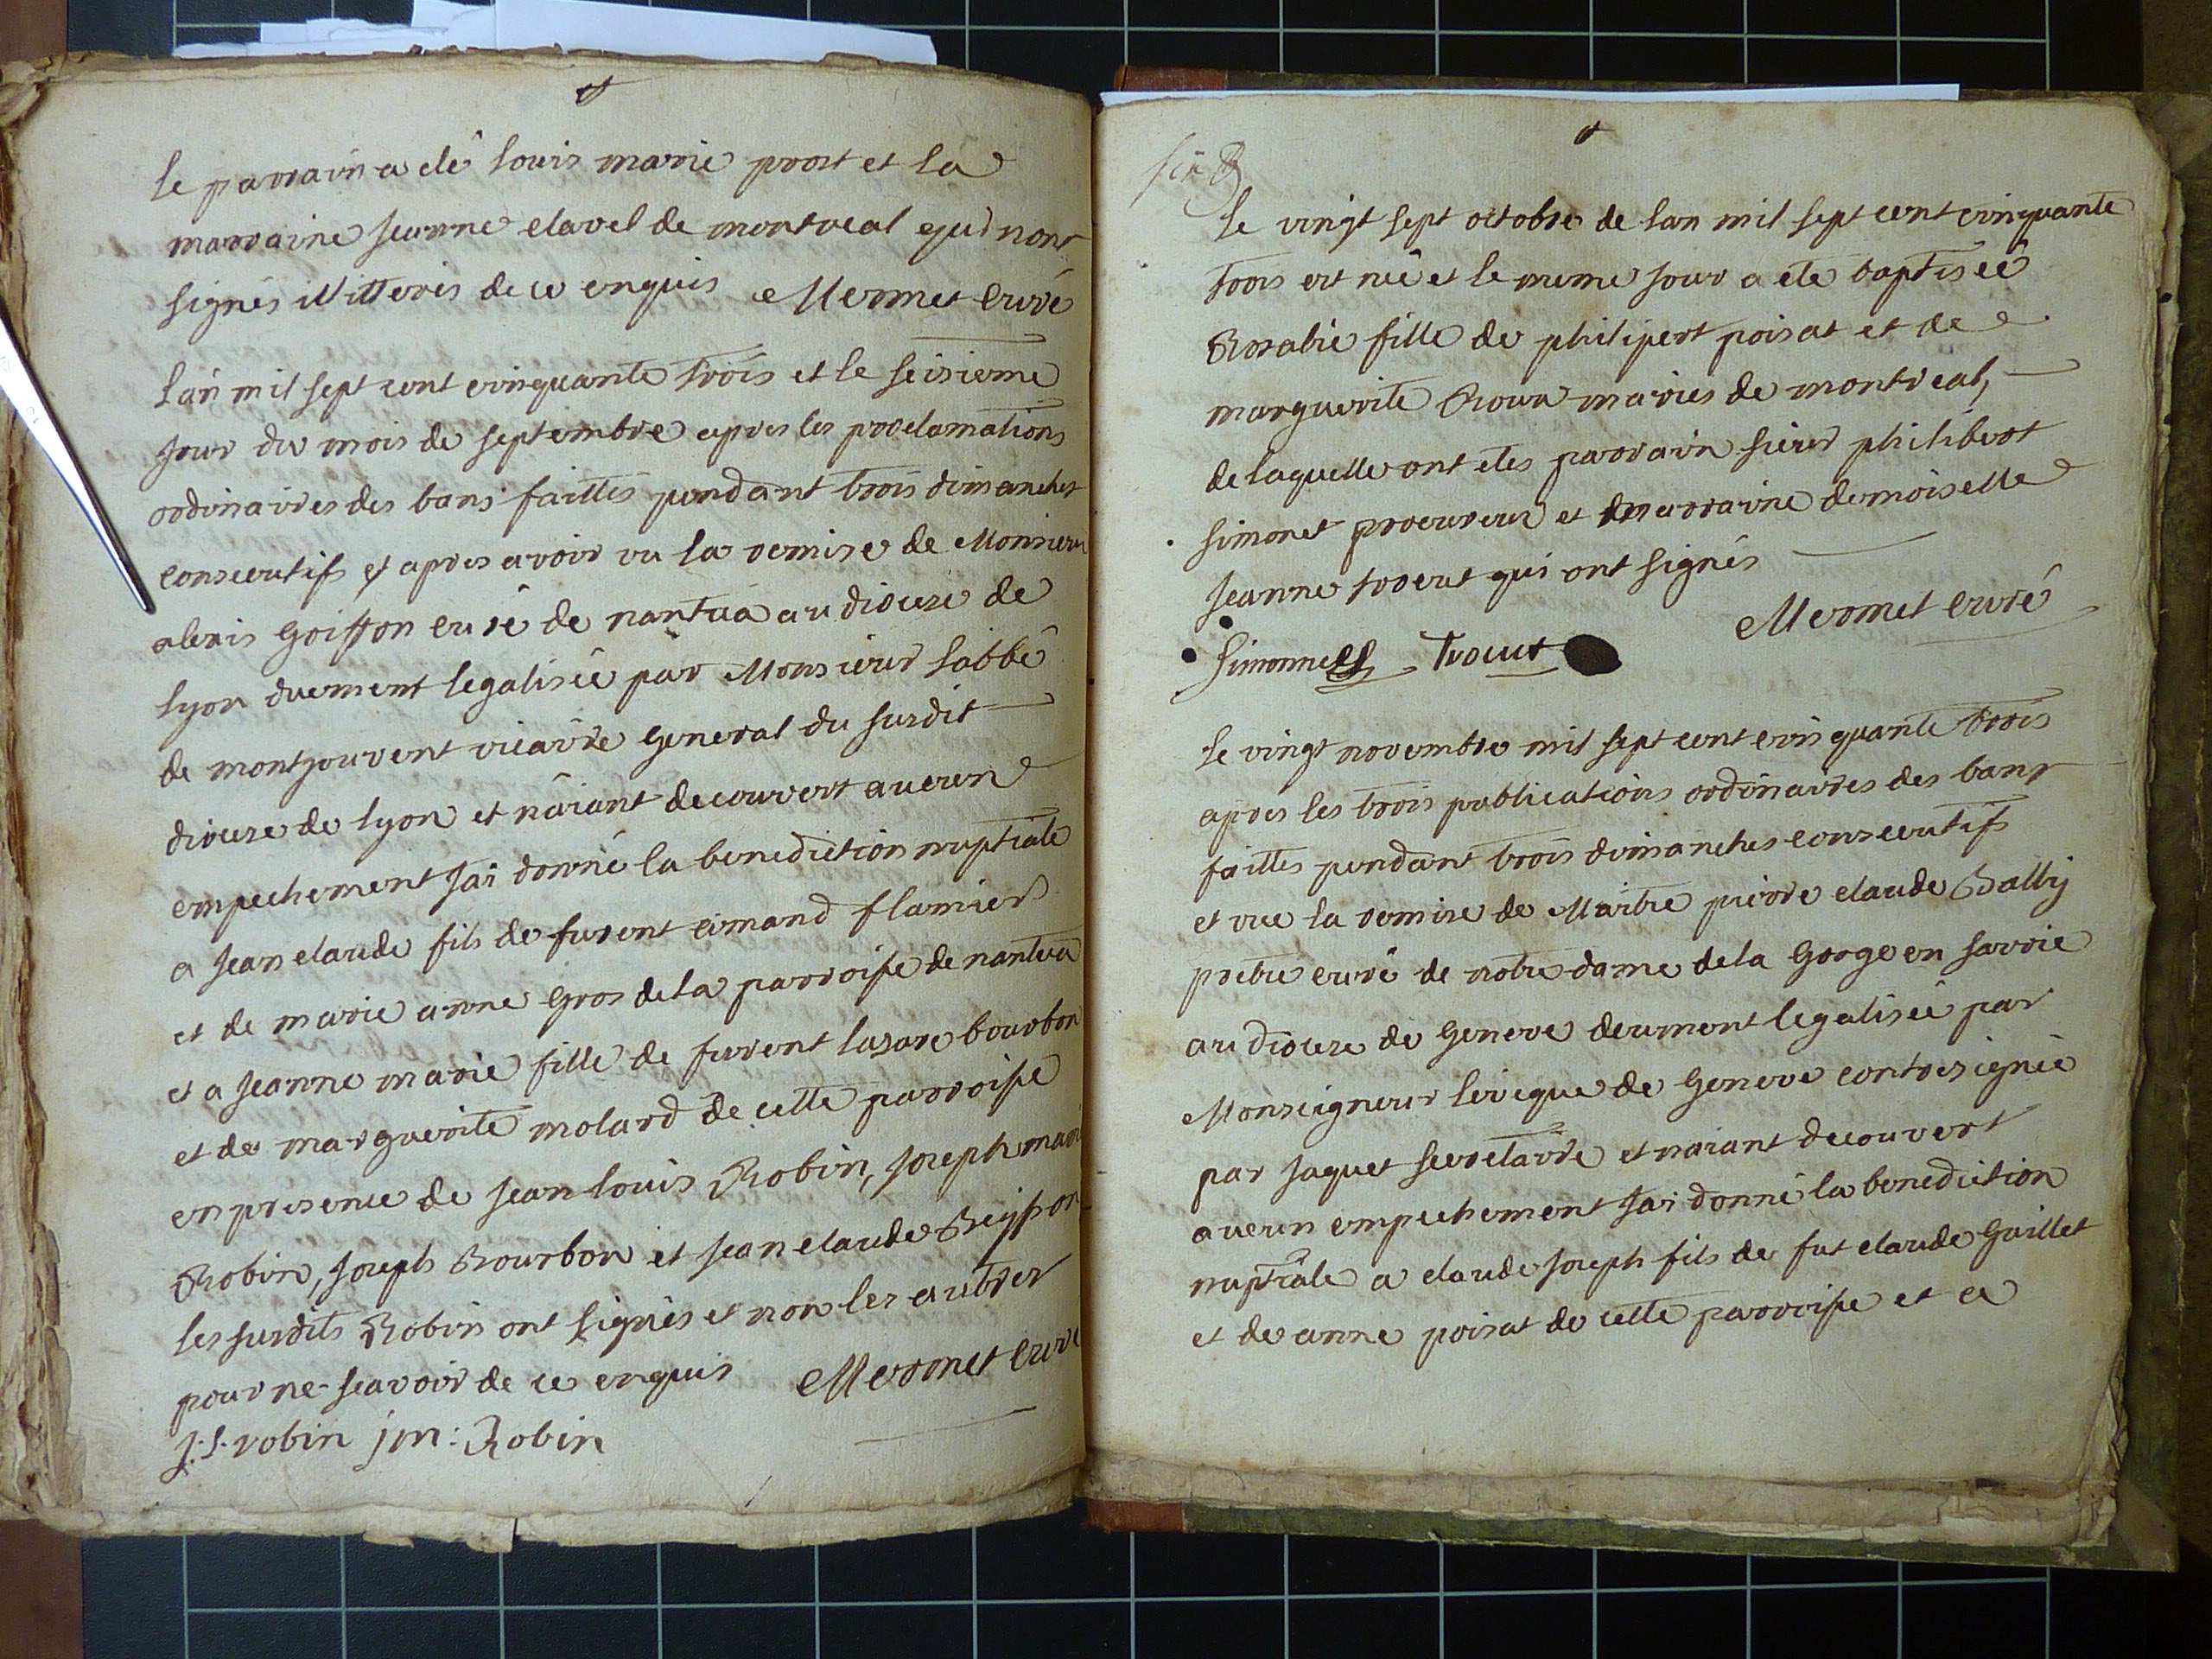 le parrain a eté louis marie prost et la
marraine jeanne clavel de montreal qui nont
signés illitteris de ce enquis Mermet curé
lan mil sept cent cinquante trois et le seisieme
jour du mois de septembre apres les proclamations
ordinaires des bans faittes pendant trois dimanches
consecutifs et apres avoir vu la remise de Monsieur
alexis goiffon curé de nantua au diocese de
lyon duement legalisée par Monsieur labbé
de montjouvent vicaire general du susdit
diocese de lyon et naiant decouvert aucun
empechement jai donné la benediction nuptiale
a jean claude fils de furent aimand flamier
et de marie anne gros de la parroisse de nantua
et a jeanne marie fille de furent lazare bourbon
et de marguerite molard de cette parroisse
en presence de jean louis Robin, joseph marie
Robin, joseph Bourbon et jean claude Beysson
les susdits Robin ont signés et non les autres
pour ne scavoir de ce enquis Mermet curé
J. L. robin jm: Robin
le vingt sept octobre de lan mil sept cent cinquante
trois est née et le meme jour a ete baptisée
Rosalie fille de philipert poisat et de
marguerite Roux mariés de montreal,
de laquelle ont etes parrain sieur philibert
simonet procureur et marraine demoiselle
jeanne trocut qui ont signés
Mermet curé
Simonnet Trocut
le vingt novembre mil sept cent cinquante trois
apres les trois publications ordinaires des bans
faittes pendant trois dimanches consecutifs
et vue la remise de Maitre pierre claude Bally
pretre curé de notre dame de la gorge en savoie
au diocese de geneve deument legalisée par
Monseigneur leveque de geneve contresignée
par jaquet secretaire et naiant decouvert
aucun empechement jai donné la benediction
nuptiale a claude joseph fils de fut claude guillet
et de anne poisat de cette parroisse et a